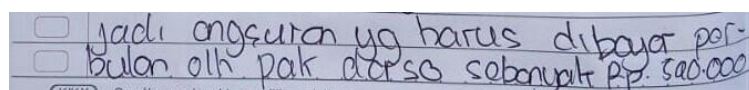 jadi angsuran yg harus dibayar per-
bulan olh pak darso sebanyak Rp. 590.000